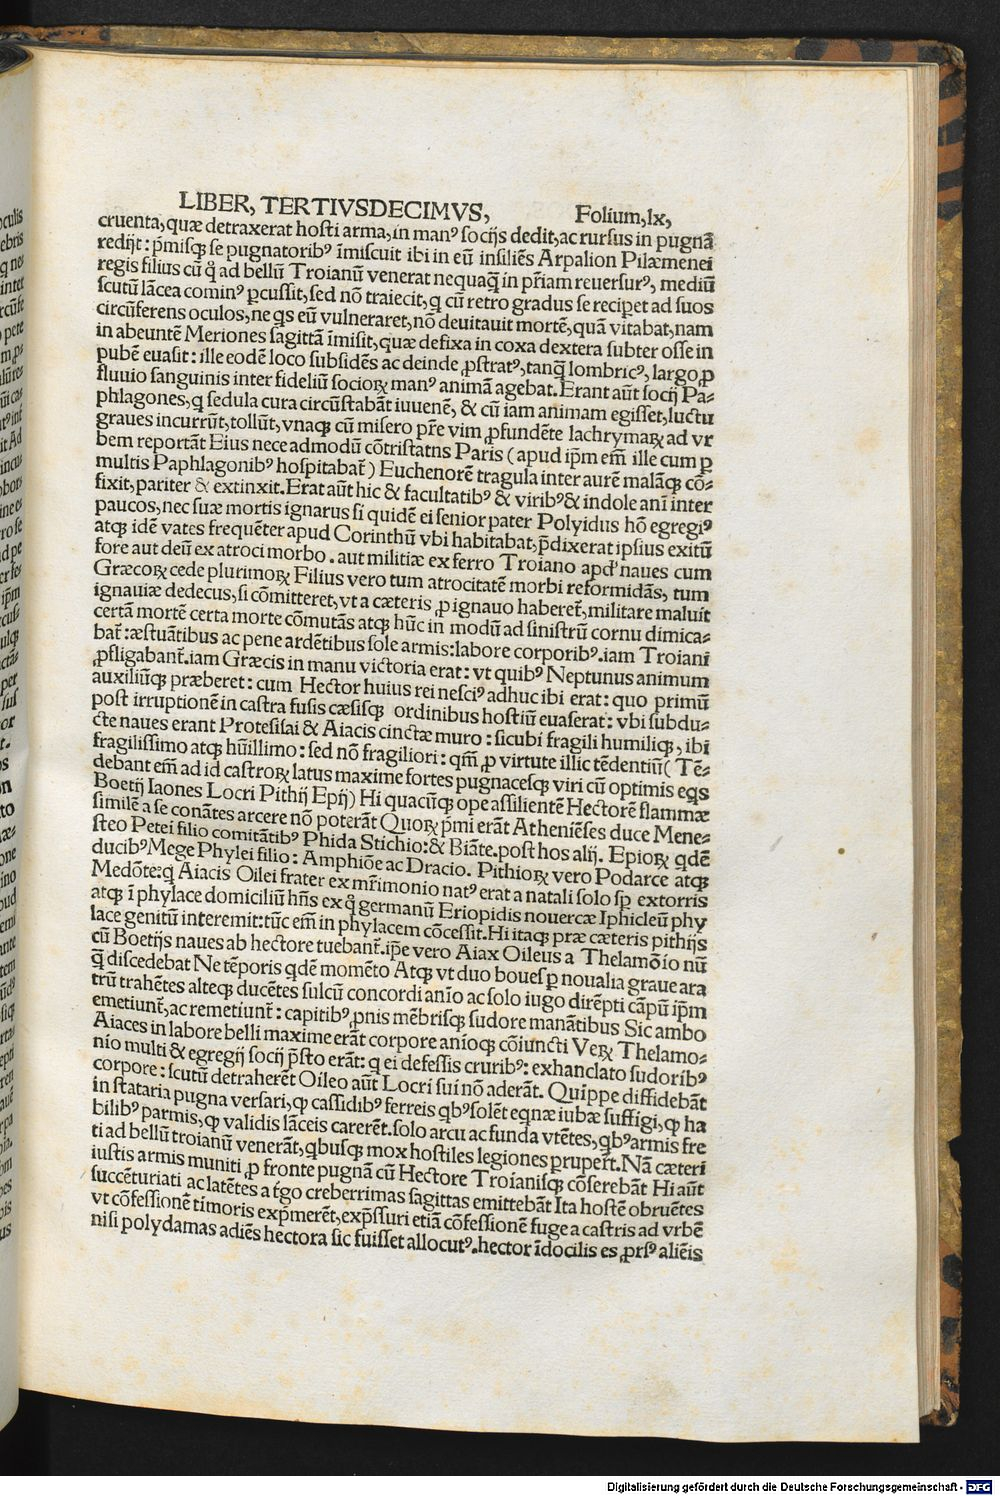 LIBER, TERTIVSDECIMVS, Folium,lx,
cruenta,quæ detraxerat hosti arma,in manꝰ socijs dedit,ac rursus in pugnā
redijt: p̄misq̢ se pugnatoribꝰ īmiscuit ibi in eū insiliēs Arpalion Pilæmenei
regis filius cū q̊ ad bellū Troianū venerat nequaq̄ in pr̄iam reuersurꝰ, mediū
scutū lācea cominꝰ ꝑcussit, sed nō traiecit, q cū retro gradus se recipet ad suos
circūferens oculos, ne qs eū vulneraret, nō deuitauit mortē, quā vitabat, nam
in abeuntē Meriones sagittā īmisit, quæ defixa in coxa dextera subter osse in
pubē euasit: ille eodē loco subsidēs ac deinde ꝓstratꝰ, tanq̄ lombricꝰ, largo ꝓ
fluuio sanguinis inter fideliū socioꝝ manꝰ animā agebat. Erant aūt socij Pa-
phlagones, q sedula cura circūstabāt iuuenē, & cū iam animam egisset, luctu
graues incurrūt, tollūt, vnaq̢ cū misero pr̄e vim ꝓfundēte lachrymaꝝ ad vr
bem reportāt Eius nece admodū cōtristatns Paris (apud ip̄m em̄ ille cum ꝑ
multis Paphlagonibꝰ hospitabat̄) Euchenorē tragula inter aurē malāq̢ cō-
fixit, pariter & extinxit. Erat aūt hic & facultatibꝰ & viribꝰ & indole ani̅ inter
paucos, nec suæ mortis ignarus si quidē ei senior pater Polyidus hō egregiꝰ
atq̢ idē vates frequēter apud Corinthū vbi habitabat, p̄dixerat ipsius exitū
fore aut deū ex atroci morbo . aut militiæ ex ferro Troiano apd' naues cum
Græcoꝝ cede plurimoꝝ Filius vero tum atrocitatē morbi reformidās, tum
ignauiæ dedecus, si cōmitteret, vt a cæteris ꝓ ignauo haberet̄, militare maluit
certā mortē certa morte cōmutās atq̢ hūc in modū ad sinistrū cornu dimica-
bat̄: æstuātibus ac pene ardētibus sole armis: labore corporibꝰ. iam Troiani
ꝓfligabant̄. iam Græcis in manu victoria erat: vt quibꝰ Neptunus animum
auxiliūq̢ præberet: cum Hector huius rei nesciꝰ adhuc ibi erat: quo primū
post irruptionē in castra fusis cæsisq̢ ordinibus hostiū euaserat: vbi subdu-
cte naues erant Protesisai & Aiacis cinctæ muro : sicubi fragili humiliq̢, ibi
fragilissimo atq̢ hūillimo: sed nō fragiliori: qm̄ ꝓ virtute illic tēdentiū ( Tē-
debant em̄ ad id castroꝝ latus maxime fortes pugnacesq̢ viri cū optimis eqs
Boetij Iaones Locri Pithij Epij) Hi quacūq̢ ope assilientē Hectorē flammæ
similē a se conātes arcere nō poterāt Quoꝝ p̄mi erāt Atheniēses duce Mene-
steo Petei filio comitātibꝰ Phida Stichio: & Biāte. post hos alij. Epioꝝ qdē
ducibꝰ Mege Phylei filio: Amphiōe ac Dracio. Pithioꝝ vero Podarce atq̢
Medōte: q Aiacis Oilei frater ex mr̄imonio natꝰ erat a natali solo sꝑ extorris
atq̢ ī phylace domiciliū hn̄s ex q̊ germanū Eriopidis nouercæ Iphicleū phy
lace genitū interemit: tūc em̄ in phylacem cōcessit. Hi itaq̢ præ cæteris pithijs
cū Boetijs naues ab hectore tuebant̄. ip̄e vero Aiax Oileus a Thelamōīo nū
q̄ discedebat Ne tēporis qdē momēto Atq̢ vt duo boues ꝑ noualia graue ara
trū trahētes alteq̢ ducētes sulcū concordi an̄io ac solo iugo dirēpti cāpū ip̄m
emetiunt̄, ac remetiunt̄: capitibꝰ, pnis mēbrisq̢ sudore manātibus Sic ambo
Aiaces in labore belli maxime erāt corpore an̄ioq̢ cōiuncti Veꝝ Thelamo-
nio multi & egregij socij p̄sto erāt: q ei defessis cruribꝰ: exhanclato sudoribꝰ
corpore: scutū detraherēt Oileo aūt Locri sui nō aderāt. Quippe diffidebāt
in stataria pugna versari, ꝙ cassidibꝰ ferreis qbꝰ solēt eqnæ iubæ suffigi, ꝙ ha
bilibꝰ parmis, ꝙ validis lāceis carerēt. solo arcu ac funda vtētes, qbꝰ armis fre
ti ad bellū troianū venerāt, qbusq̢ mox hostiles legiones ꝑruper̄t. Nā cæteri
iustis armis muniti ꝓ fronte pugnā cū Hectore Troianisq̢ cōserebāt Hi aūt
succēturiati ac latētes a t̄go creberrimas sagittas emittebāt Ita hostē obruētes
vt cōfessionē timoris exp̄merēt, exp̄ssuri etiā cōfessionē fuge a castris ad vrbē
nisi polydamas adiēs hectora sic fuisset allocutꝰ. hector īdocilis es ꝓrsꝰ aliēis
Digitalisierung gefördert durch die Deutsche Forschungsgemeinschaft - DFG